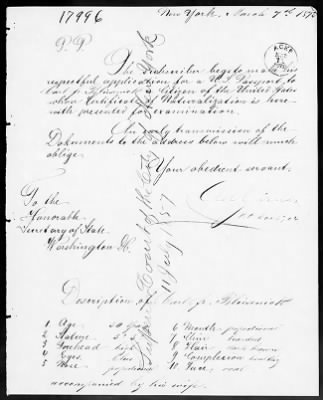 17996
New York, March 7th 187
P. P.
The Subscriber begs to make his
respectful application for a U.S. Passport, to
Carl p. a Citizen of the United States
whose Certificate of Naturalization is here-
with presented for examination.
An early transmission of the
Dokuments to the address below will much
oblige.
Your obedient servant.
To the
Honorable
Secretary of State
Washington D.C.
Superior Court of the City of New York
11 July 1857
Description of Carl p.
1 Age 50 years
2 Stature 5'
3 Forehead high
4 Eyes
5 Nose proportional
6 Mouth proportional
7 Chin bearded
8 Hair dark brown
9 Complexion healthy
10 Face oval
accompanied by his wife.